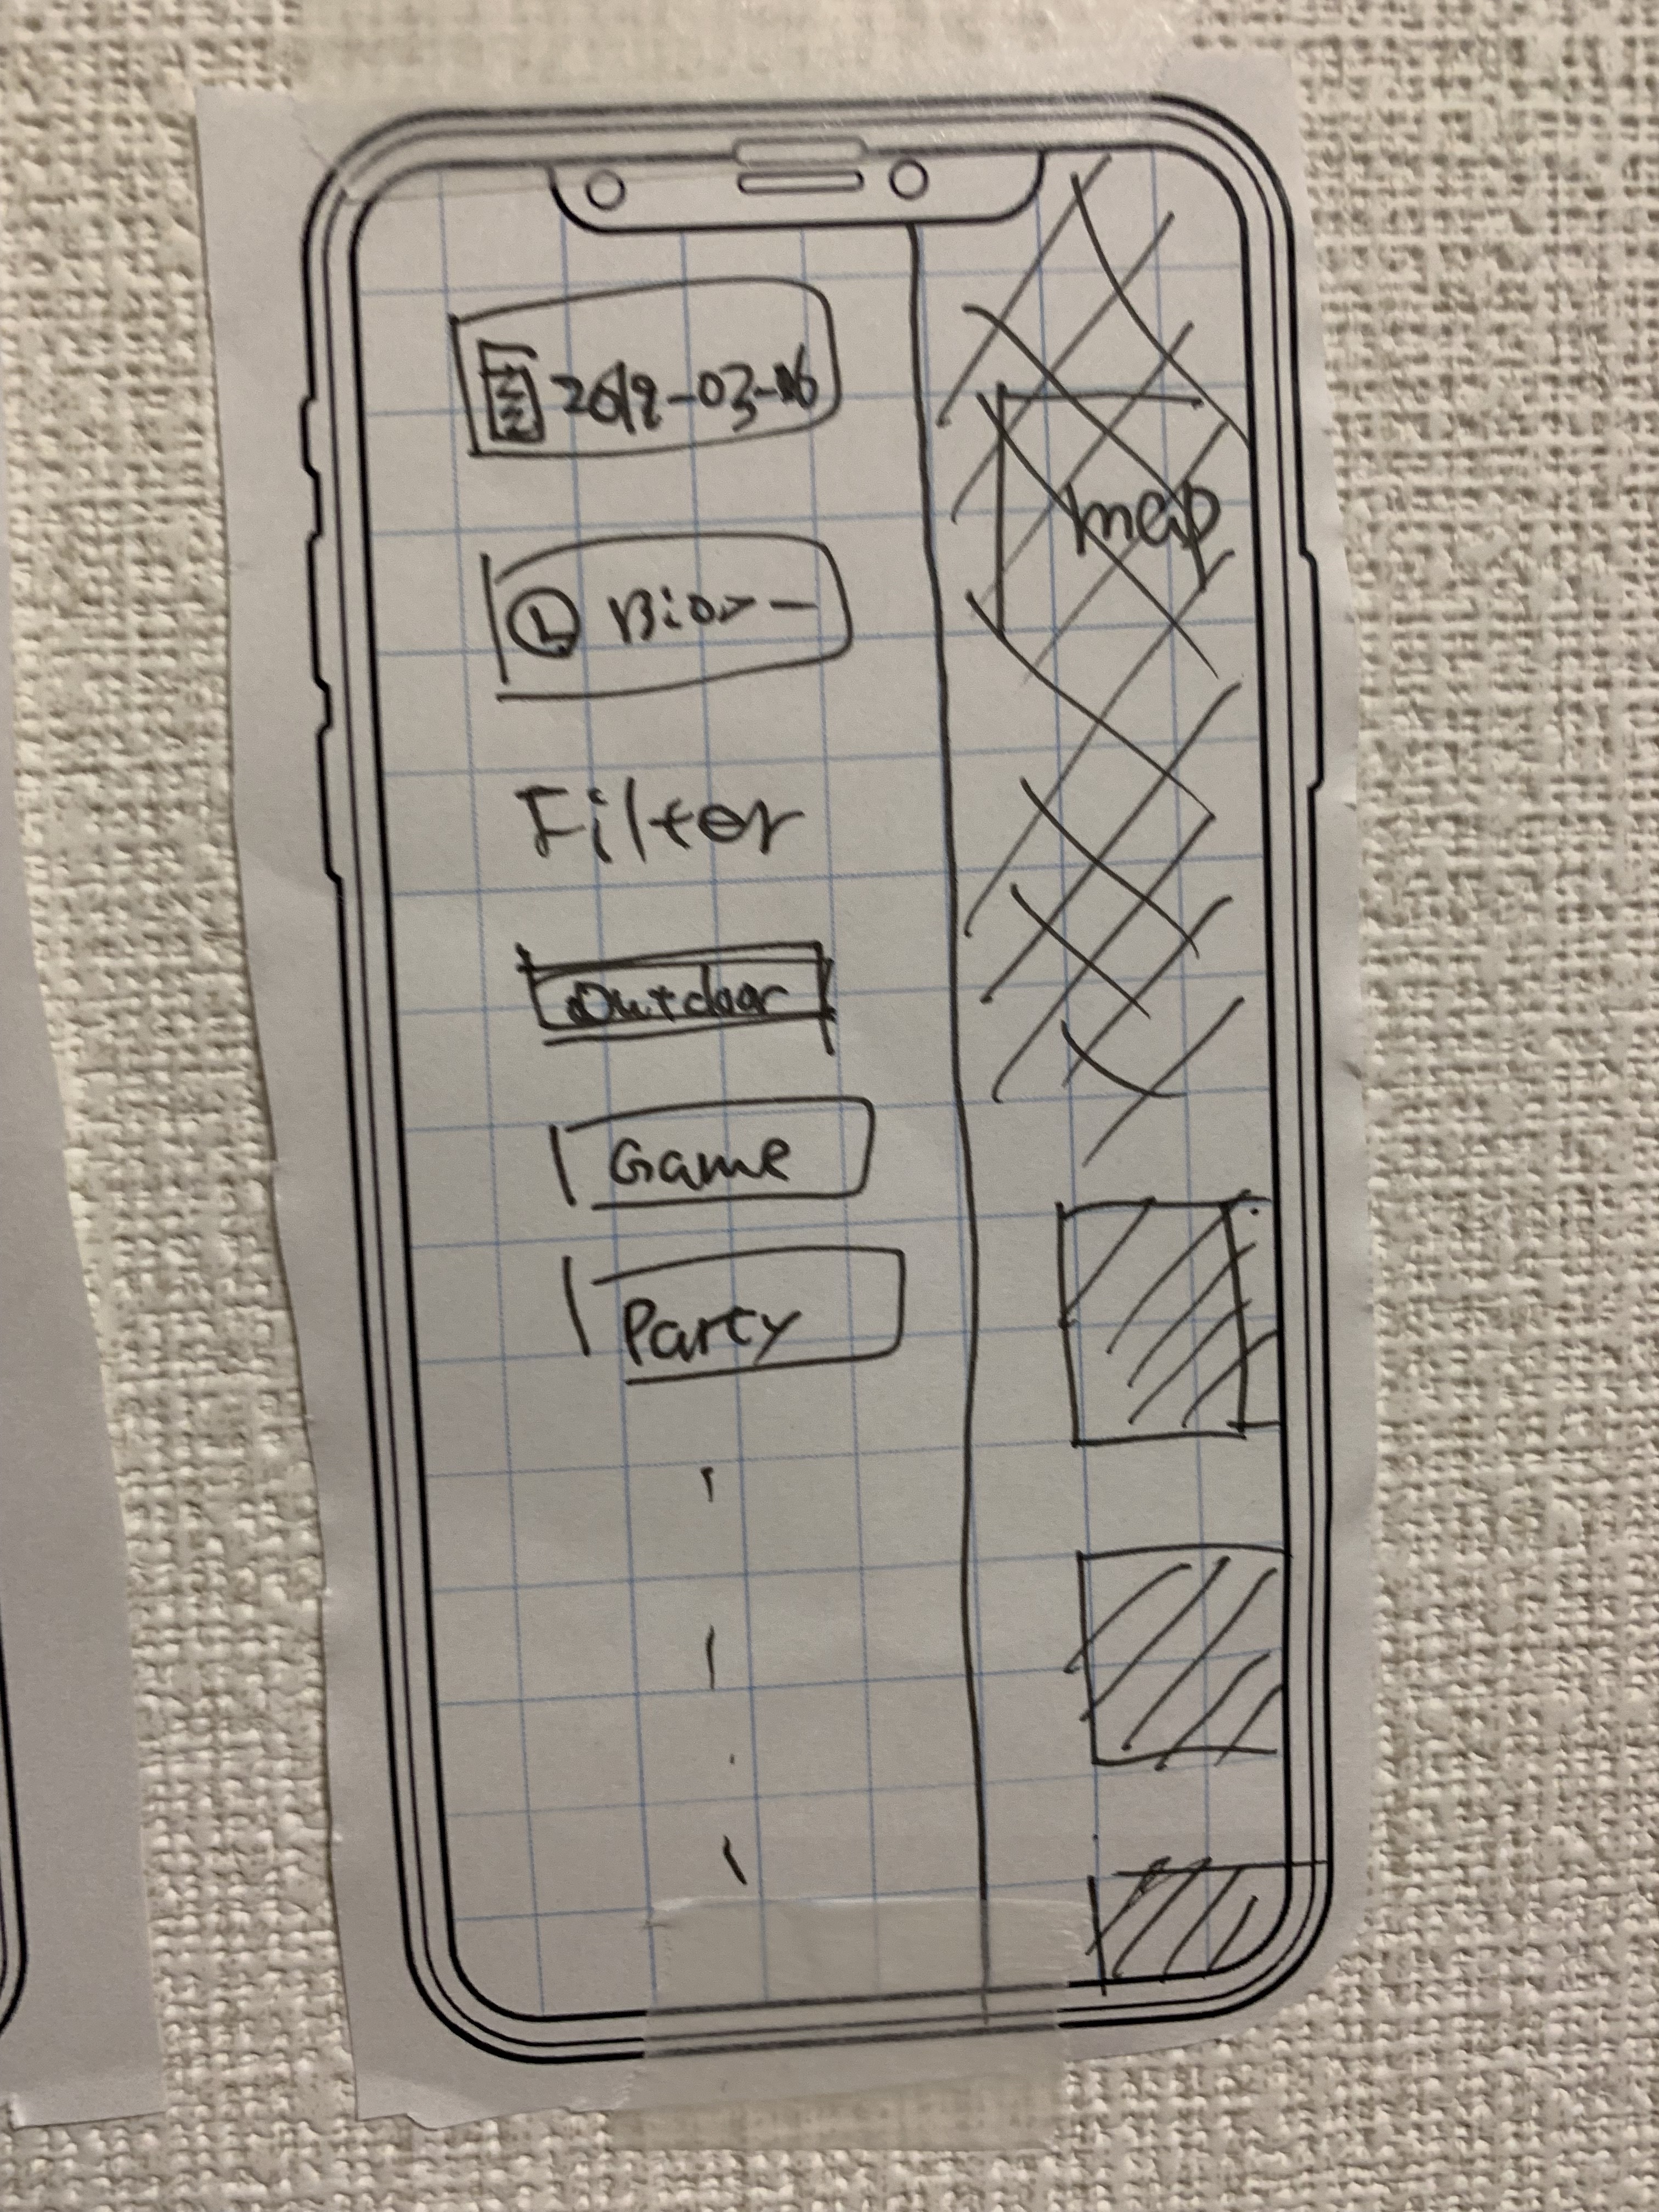 2019-03-16
Filter
Outdoor
Game
Party
map